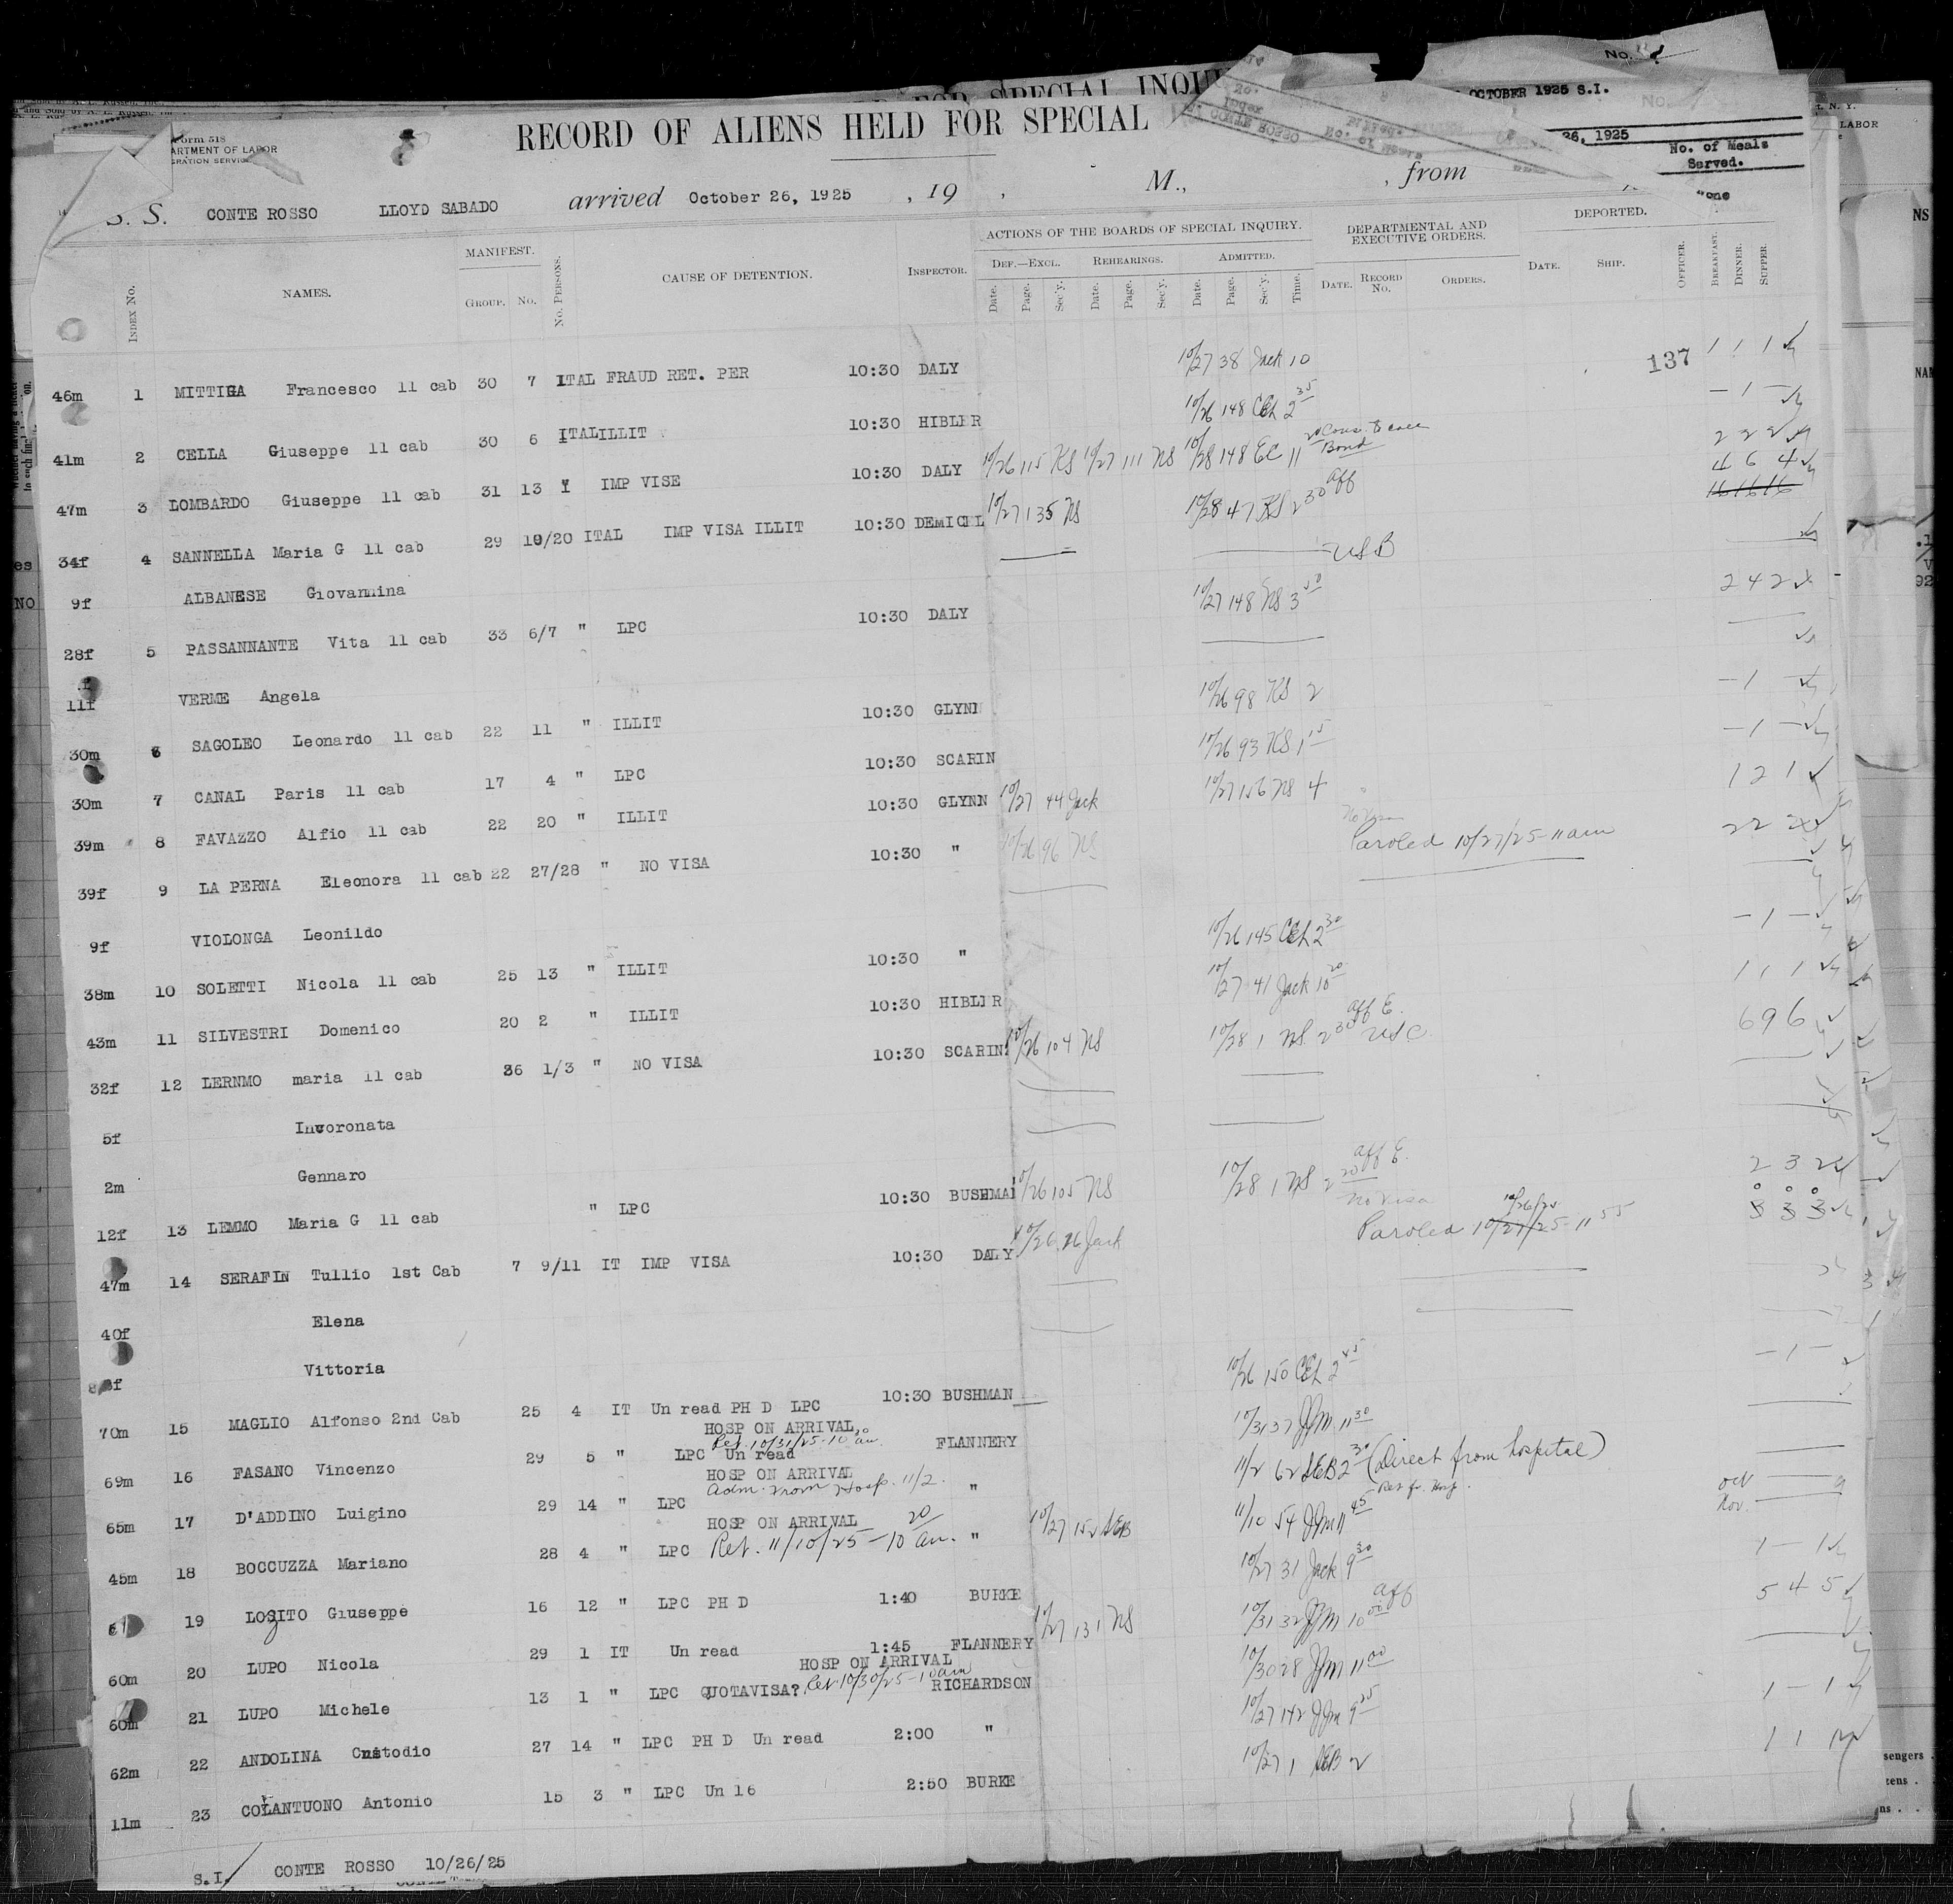 RECORD OF ALIENS HELD FOR SPECIAL
OCTOBER 1925 S.I.
26, 1925
No. of Meals
Served.
Form 518
ARTMENT OF LABOR
GRATION SERVICE
S. S. CONTE ROSSO LLOYD SABADO arrived October 26, 1925 , 19 , M., , from
INDEX No. NAMES. MANIFEST. GROUP. No. No. PERSONS. CAUSE OF DETENTION. INSPECTOR. ACTIONS OF THE BOARDS OF SPECIAL INQUIRY. DEF.—EXCL. Date. Page. Sec'y. REHEARINGS. Date. Page. Sec'y. ADMITTED. Date. Page. Sec'y. Time. DEPARTMENTAL AND EXECUTIVE ORDERS. DATE. RECORD No. ORDERS. DEPORTED. DATE. SHIP. OFFICER. BREAKFAST. DINNER. SUPPER.
137
46m 1 MITTIGA Francesco 11 cab 30 7 ITAL FRAUD RET. PER 10:30 DALY 10/27 38 Jack 10 1 1 1
41m 2 CELLA Giuseppe 11 cab 30 6 ITAL ILLIT 10:30 HIBLER 10/26 148 CEL 2 35 – 1 –
47m 3 LOMBARDO Giuseppe 11 cab 31 13 I IMP VISE 10:30 DALY 10/26 115 KS 10/27 111 NS 10/28 148 EC 11 Bond 2 2 2
34f 4 SANNELLA Maria G 11 cab 29 19/20 ITAL IMP VISA ILLIT 10:30 DEMICEL 10/27 135 NS 10/28 47 KS 2 30 aff 4 6 4
9f ALBANESE Giovannina USB
28f 5 PASSANNANTE Vita 11 cab 33 6/7 " LPC 10:30 DALY 10/27 148 NS 3 50 2 4 2
11f VERME Angela
30m 6 SAGOLEO Leonardo 11 cab 22 11 " ILLIT 10:30 GLYNN 10/26 98 KS 2 – 1 –
30m 7 CANAL Paris 11 cab 17 4 " LPC 10:30 SCARIN 10/26 93 KS 1 15 – 1 –
39m 8 FAVAZZO Alfio 11 cab 22 20 " ILLIT 10:30 GLYNN 10/27 44 Jack 10/27 156 NS 4 1 2 1
39f 9 LA PERNA Eleonora 11 cab 22 27/28 " NO VISA 10:30 " 10/26 96 NS Paroled 10/27/25 - 11 am 2 2 2
9f VIOLONGA Leonildo
38m 10 SOLETTI Nicola 11 cab 25 13 " ILLIT 10:30 " 10/26 145 CEL 2 30 – 1 –
43m 11 SILVESTRI Domenico 20 2 " ILLIT 10:30 HIBLER 10/27 41 Jack 10 20 1 1 1
32f 12 LERNMO maria 11 cab 36 1/3 " NO VISA 10:30 SCARIN 10/26 104 NS 10/28 1 NS 2 30 aff E. USC 6 9 6
5f Incoronata
2m Gennaro
12f 13 LEMMO Maria G 11 cab " LPC 10:30 BUSHMAN 10/26 105 NS 10/28 1 NS 2 20 aff E. 2 3 2
no visa
47m 14 SERAFIN Tullio 1st Cab 7 9/11 IT IMP VISA 10:30 DALY 10/26 76 Jack Paroled 10/27/25 - 11 55 10/26/25 3 3 3
40f Elena
8f Vittoria
70m 15 MAGLIO Alfonso 2nd Cab 25 4 IT Un read PH D LPC 10:30 BUSHMAN 10/26 150 CEL 2 45 – 1 –
HOSP ON ARRIVAL
Ret. 10/31/25 - 10 20 am.
69m 16 FASANO Vincenzo 29 5 " LPC Un read FLANNERY 10/31 37 JJM 11 30
HOSP ON ARRIVAL
Adm. from Hosp. 11/2.
65m 17 D'ADDINO Luigino 29 14 " LPC " 11/2 62 SEB 2 30 (Direct from hospital)
HOSP ON ARRIVAL
Ret. 11/10/25 - 10 20 am.
45m 18 BOCCUZZA Mariano 28 4 " LPC " 10/27 152 SEB 11/10 54 JJM 11 45 Ret fr. Hosp. Oct Nov.
19 LOZITO Giuseppe 16 12 " LPC PH D 1:40 BURKE 10/27 31 Jack 9 30 1 – 1
60m 20 LUPO Nicola 29 1 IT Un read 1:45 FLANNERY 10/27 131 NS 10/31 32 JJM 10 00 aff 5 4 5
HOSP ON ARRIVAL
Ret 10/30/25 - 10 am
60m 21 LUPO Michele 13 1 " LPC QUOTAVISA? RICHARDSON 10/30 28 JJM 11 00
62m 22 ANDOLINA Custodio 27 14 " LPC PH D Un read 2:00 " 10/27 142 JJM 9 25 1 – 1
11m 23 COLANTUONO Antonio 15 3 " LPC Un 16 2:50 BURKE 10/27 1 SEB 2 1 1
S.I. CONTE ROSSO 10/26/25